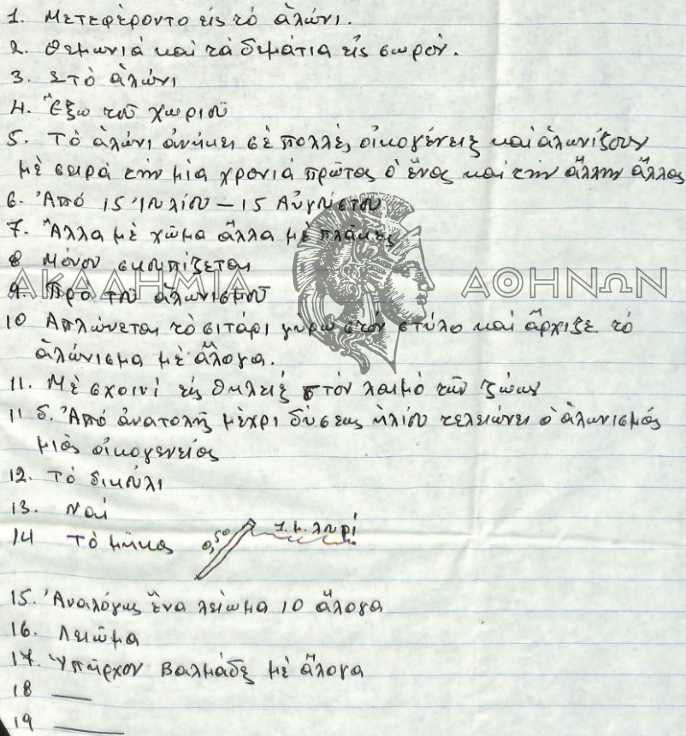 1. Μετεφέροντο εἰς τό ἁλώνι.
2. Θεμωνιά καί τά δεμάτια εἰς σωρόν.
3. Στό ἁλώνι
4. Ἔξω τοῦ χωριοῦ
5. Τό ἁλώνι ἀνήκει σέ πολλές οἰκογένειες καί ἁλωνίζουν
μέ σειρά τήν μία χρονιά πρῶτος ὁ ἕνας καί τήν ἄλλην ἄλλος
6. Ἀπό 15 Ἰουλίου – 15 Αὐγούστου
7. Ἄλλα μέ χῶμα ἄλλα μέ πλάκες
8 Μόνον σκουπίζεται
ΑΚΑΔΗΜΙΑ ΑΘΗΝΩΝ
9. Πρό τοῦ ἁλωνισμοῦ
10 Ἁπλώνεται τό σιτάρι γύρω στόν στύλο καί ἄρχιζε τό
ἁλώνισμα μέ ἄλογα.
11. Μέ σχοινί εἰς θηλειές στόν λαιμό τῶν ζώων
11 δ. Ἀπό ἀνατολῆς μέχρι δύσεως ἡλίου τελειώνει ὁ ἁλωνισμός
μιᾶς οἰκογενείας
12. Τό δικούλι
13. Ναί
14 Τό μῆκος 0,50 1 μ. λουρί
15. Ἀναλόγως ἕνα λείωμα 10 ἄλογα
16. Λειῶμα
17. Ὑπῆρχον Βαλμάδες μέ ἄλογα
18 —
19 —